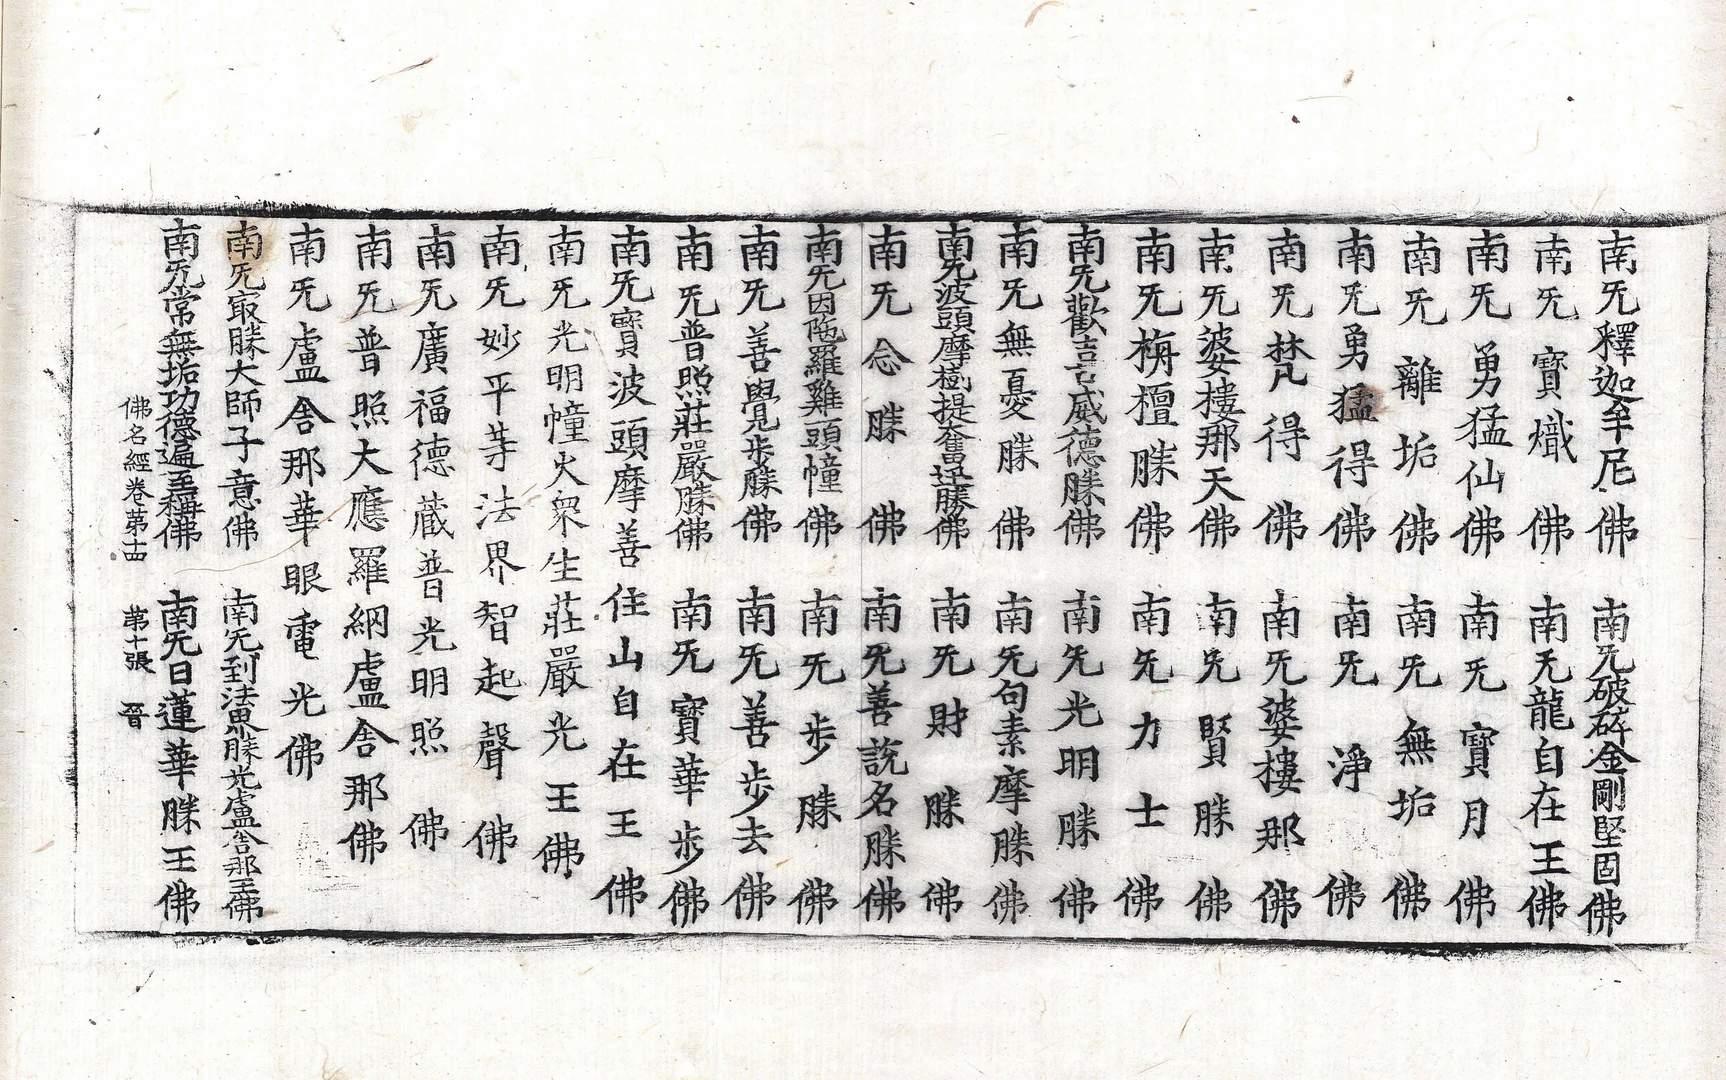 南无釋迦牟尼佛 南无破碎金剛堅固佛
南无寶熾佛 南无龍自在王佛
南无勇猛仙佛 南无寶月佛
南无離垢佛 南无無垢佛
南无勇猛得佛 南无淨佛
南无梵得佛 南无婆摟那佛
南无婆摟那天佛 南无賢勝佛
南无栴檀勝佛 南无力士佛
南无歡喜威德勝佛 南无光明勝佛
南无無憂勝佛 南无句素摩勝佛
南无波頭摩樹提奮迅勝佛 南无財勝佛
南无念勝佛 南无善說名勝佛
南无因陁羅雞頭幢佛 南无步勝佛
南无善覺步勝佛 南无善步去佛
南无普照莊嚴勝佛 南无寶華步佛
南无寶波頭摩善住山自在王佛
南无光明幢火衆生莊嚴光王佛
南无妙平等法界智起聲佛
南无廣福德藏普光明照佛
南无普照大應羅網盧舍那佛
南无盧舍那華眼電光佛
南无㝡勝大師子意佛 南无到法界勝光盧舍那王佛
南无常無垢功德遍至稱佛 南无日蓮華勝王佛
佛名經卷第十四 第十張 晉